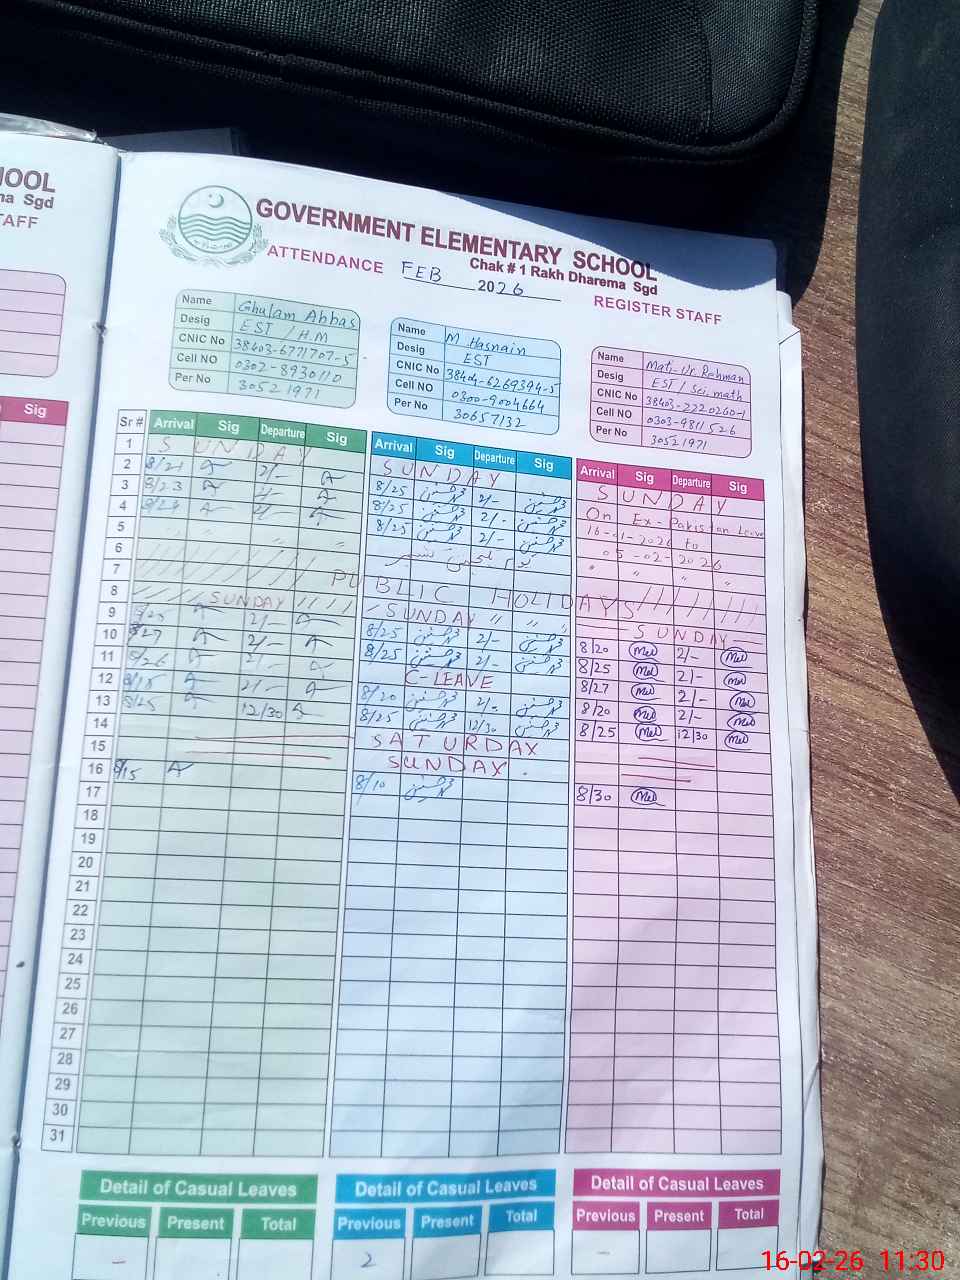 HOOL
na Sgd
TAFF
Sig
GOVERNMENT ELEMENTARY SCHOOL
Chak # 1 Rakh Dharema Sgd
ATTENDANCE FEB 2026 REGISTER STAFF
Name Ghulam Abbas
Desig EST / H.M
CNIC No 38403-6771707-5
Cell NO 0302-8930110
Per No 30521971
Name M Hasnain
Desig EST
CNIC No 38404-6269394-5
Cell NO 0300-9004664
Per No 30657132
Name Mati-Ur-Rehman
Desig EST / Sci. math
CNIC No 38403-2220260-1
Cell NO 0303-9811526
Per No 30521971
Sr # Arrival Sig Departure Sig Arrival Sig Departure Sig Arrival Sig Departure Sig
1 SUNDAY SUNDAY SUNDAY
2 8/21 2/- 8/25 2/- On Ex-Pakistan Leave
3 8/23 2/- 8/25 2/- 16-01-2026 to
4 8/24 2/- 8/25 2/- 05-02-2026
5 " " "
6
7 PUBLIC HOLIDAYS
8 SUNDAY SUNDAY " " " SUNDAY
9 8/25 2/- 8/25 2/- 8/20 2/-
10 8/27 2/- 8/25 2/- 8/25 2/-
11 8/26 2/- C-LEAVE 8/27 2/-
12 8/18 2/- 8/20 2/- 8/20 2/-
13 8/25 12/30 8/25 12/30 8/25 12/30
14 SATURDAY
15 SUNDAY
16 8/15 8/10 8/30
17
18
19
20
21
22
23
24
25
26
27
28
29
30
31
Detail of Casual Leaves Detail of Casual Leaves Detail of Casual Leaves
Previous Present Total Previous Present Total Previous Present Total
- 2 -
16-02-26 11:30